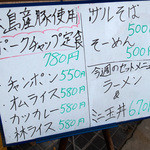 島産豚使用
ポークチャップ定食
780円
・チャンポン 550円
・オムライス 580円
・カツカレー 580円
・ハヤシライス 580円
ザルそば
500円
そーめん
500円
今週のセットメニュー
ラーメン
&
ミニ玉丼 670円